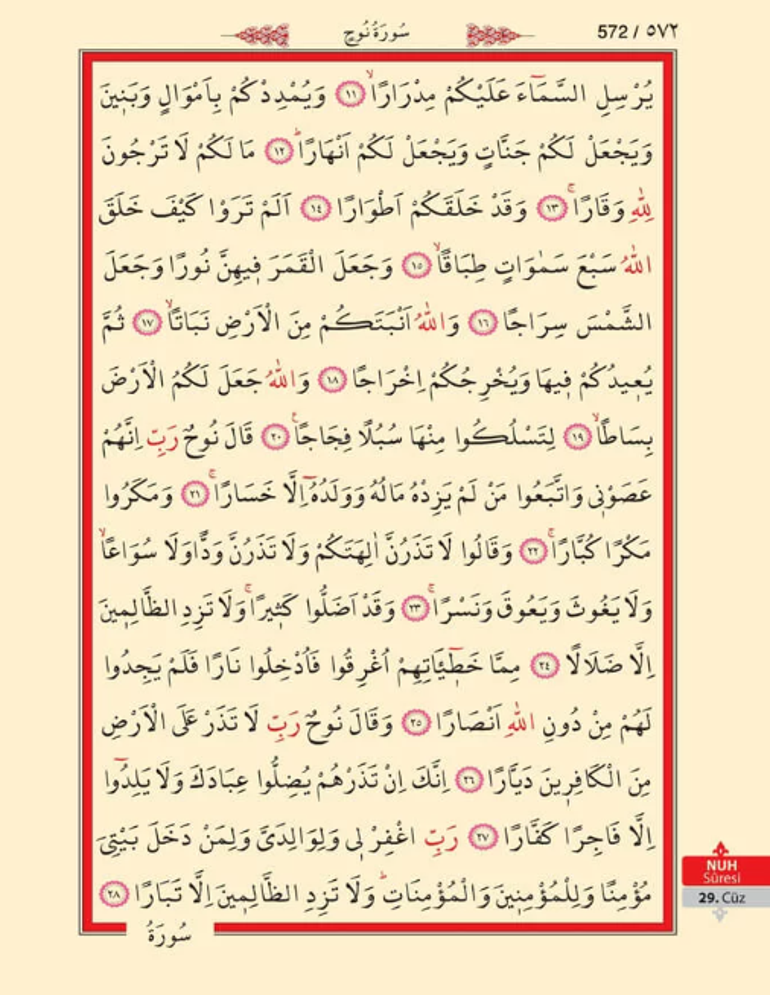 سُورَةُ نُوحٍ
572 / ٥٧٢
يُرْسِلِ السَّمَٓاءَ عَلَيْكُمْ مِدْرَارًاۙ ﴿١١﴾ وَيُمْدِدْكُمْ بِاَمْوَالٍ وَبَن۪ينَ
وَيَجْعَلْ لَكُمْ جَنَّاتٍ وَيَجْعَلْ لَكُمْ اَنْهَارًاۜ ﴿١٢﴾ مَا لَكُمْ لَا تَرْجُونَ
لِلّٰهِ وَقَارًاۚ ﴿١٣﴾ وَقَدْ خَلَقَكُمْ اَطْوَارًا ﴿١٤﴾ اَلَمْ تَرَوْا كَيْفَ خَلَقَ
اللّٰهُ سَبْعَ سَمٰوَاتٍ طِبَاقًاۙ ﴿١٥﴾ وَجَعَلَ الْقَمَرَ ف۪يهِنَّ نُورًا وَجَعَلَ
الشَّمْسَ سِرَاجًا ﴿١٦﴾ وَاللّٰهُ اَنْبَتَكُمْ مِنَ الْاَرْضِ نَبَاتًاۙ ﴿١٧﴾ ثُمَّ
يُع۪يدُكُمْ ف۪يهَا وَيُخْرِجُكُمْ اِخْرَاجًا ﴿١٨﴾ وَاللّٰهُ جَعَلَ لَكُمُ الْاَرْضَ
بِسَاطًاۙ ﴿١٩﴾ لِتَسْلُكُوا مِنْهَا سُبُلًا فِجَاجًاۚ ﴿٢٠﴾ قَالَ نُوحٌ رَبِّ اِنَّهُمْ
عَصَوْن۪ي وَاتَّبَعُوا مَنْ لَمْ يَزِدْهُ مَالُهُ وَوَلَدُهُٓ اِلَّا خَسَارًاۚ ﴿٢١﴾ وَمَكَرُوا
مَكْرًا كُبَّارًاۚ ﴿٢٢﴾ وَقَالُوا لَا تَذَرُنَّ اٰلِهَتَكُمْ وَلَا تَذَرُنَّ وَدًّا وَلَا سُوَاعًاۙ
وَلَا يَغُوثَ وَيَعُوقَ وَنَسْرًاۚ ﴿٢٣﴾ وَقَدْ اَضَلُّوا كَث۪يرًاۚ وَلَا تَزِدِ الظَّالِم۪ينَ
اِلَّا ضَلَالًا ﴿٢٤﴾ مِمَّا خَط۪ٓيـَٔاتِهِمْ اُغْرِقُوا فَاُدْخِلُوا نَارًا فَلَمْ يَجِدُوا
لَهُمْ مِنْ دُونِ اللّٰهِ اَنْصَارًا ﴿٢٥﴾ وَقَالَ نُوحٌ رَبِّ لَا تَذَرْ عَلَى الْاَرْضِ
مِنَ الْكَافِر۪ينَ دَيَّارًا ﴿٢٦﴾ اِنَّكَ اِنْ تَذَرْهُمْ يُضِلُّوا عِبَادَكَ وَلَا يَلِدُٓوا
اِلَّا فَاجِرًا كَفَّارًا ﴿٢٧﴾ رَبِّ اغْفِرْ ل۪ي وَلِوَالِدَيَّ وَلِمَنْ دَخَلَ بَيْتِيَ
مُؤْمِنًا وَلِلْمُؤْمِن۪ينَ وَالْمُؤْمِنَاتِۜ وَلَا تَزِدِ الظَّالِم۪ينَ اِلَّا تَبَارًا ﴿٢٨﴾
سُورَةُ
NUH
Sûresi
29. Cüz